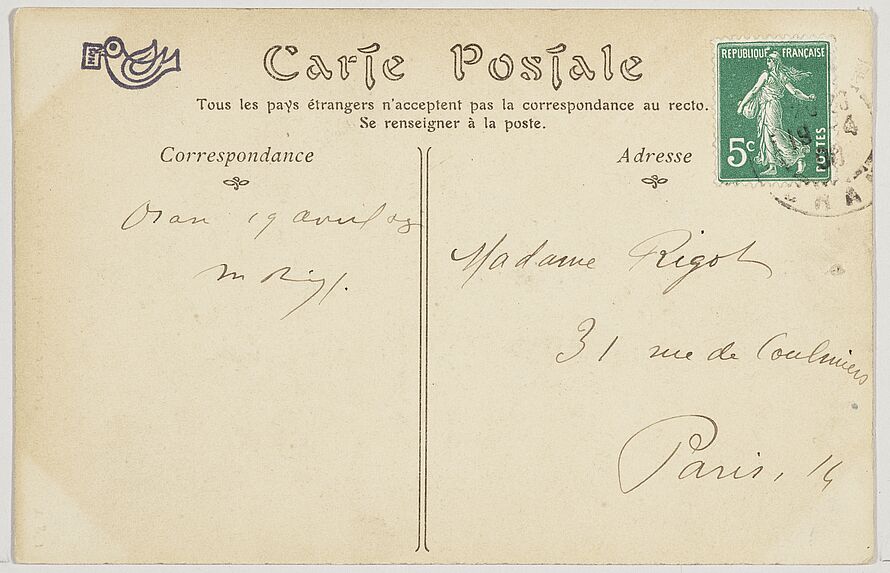 Carte Postale
Tous les pays étrangers n'acceptent pas la correspondance au recto.
Se renseigner à la poste.
Correspondance
Adresse
REPUBLIQUE FRANÇAISE
5c
POSTES
19
4
Oran 19 avril 08
Madame Rigot
31 rue de Coulmiers
Paris, 14